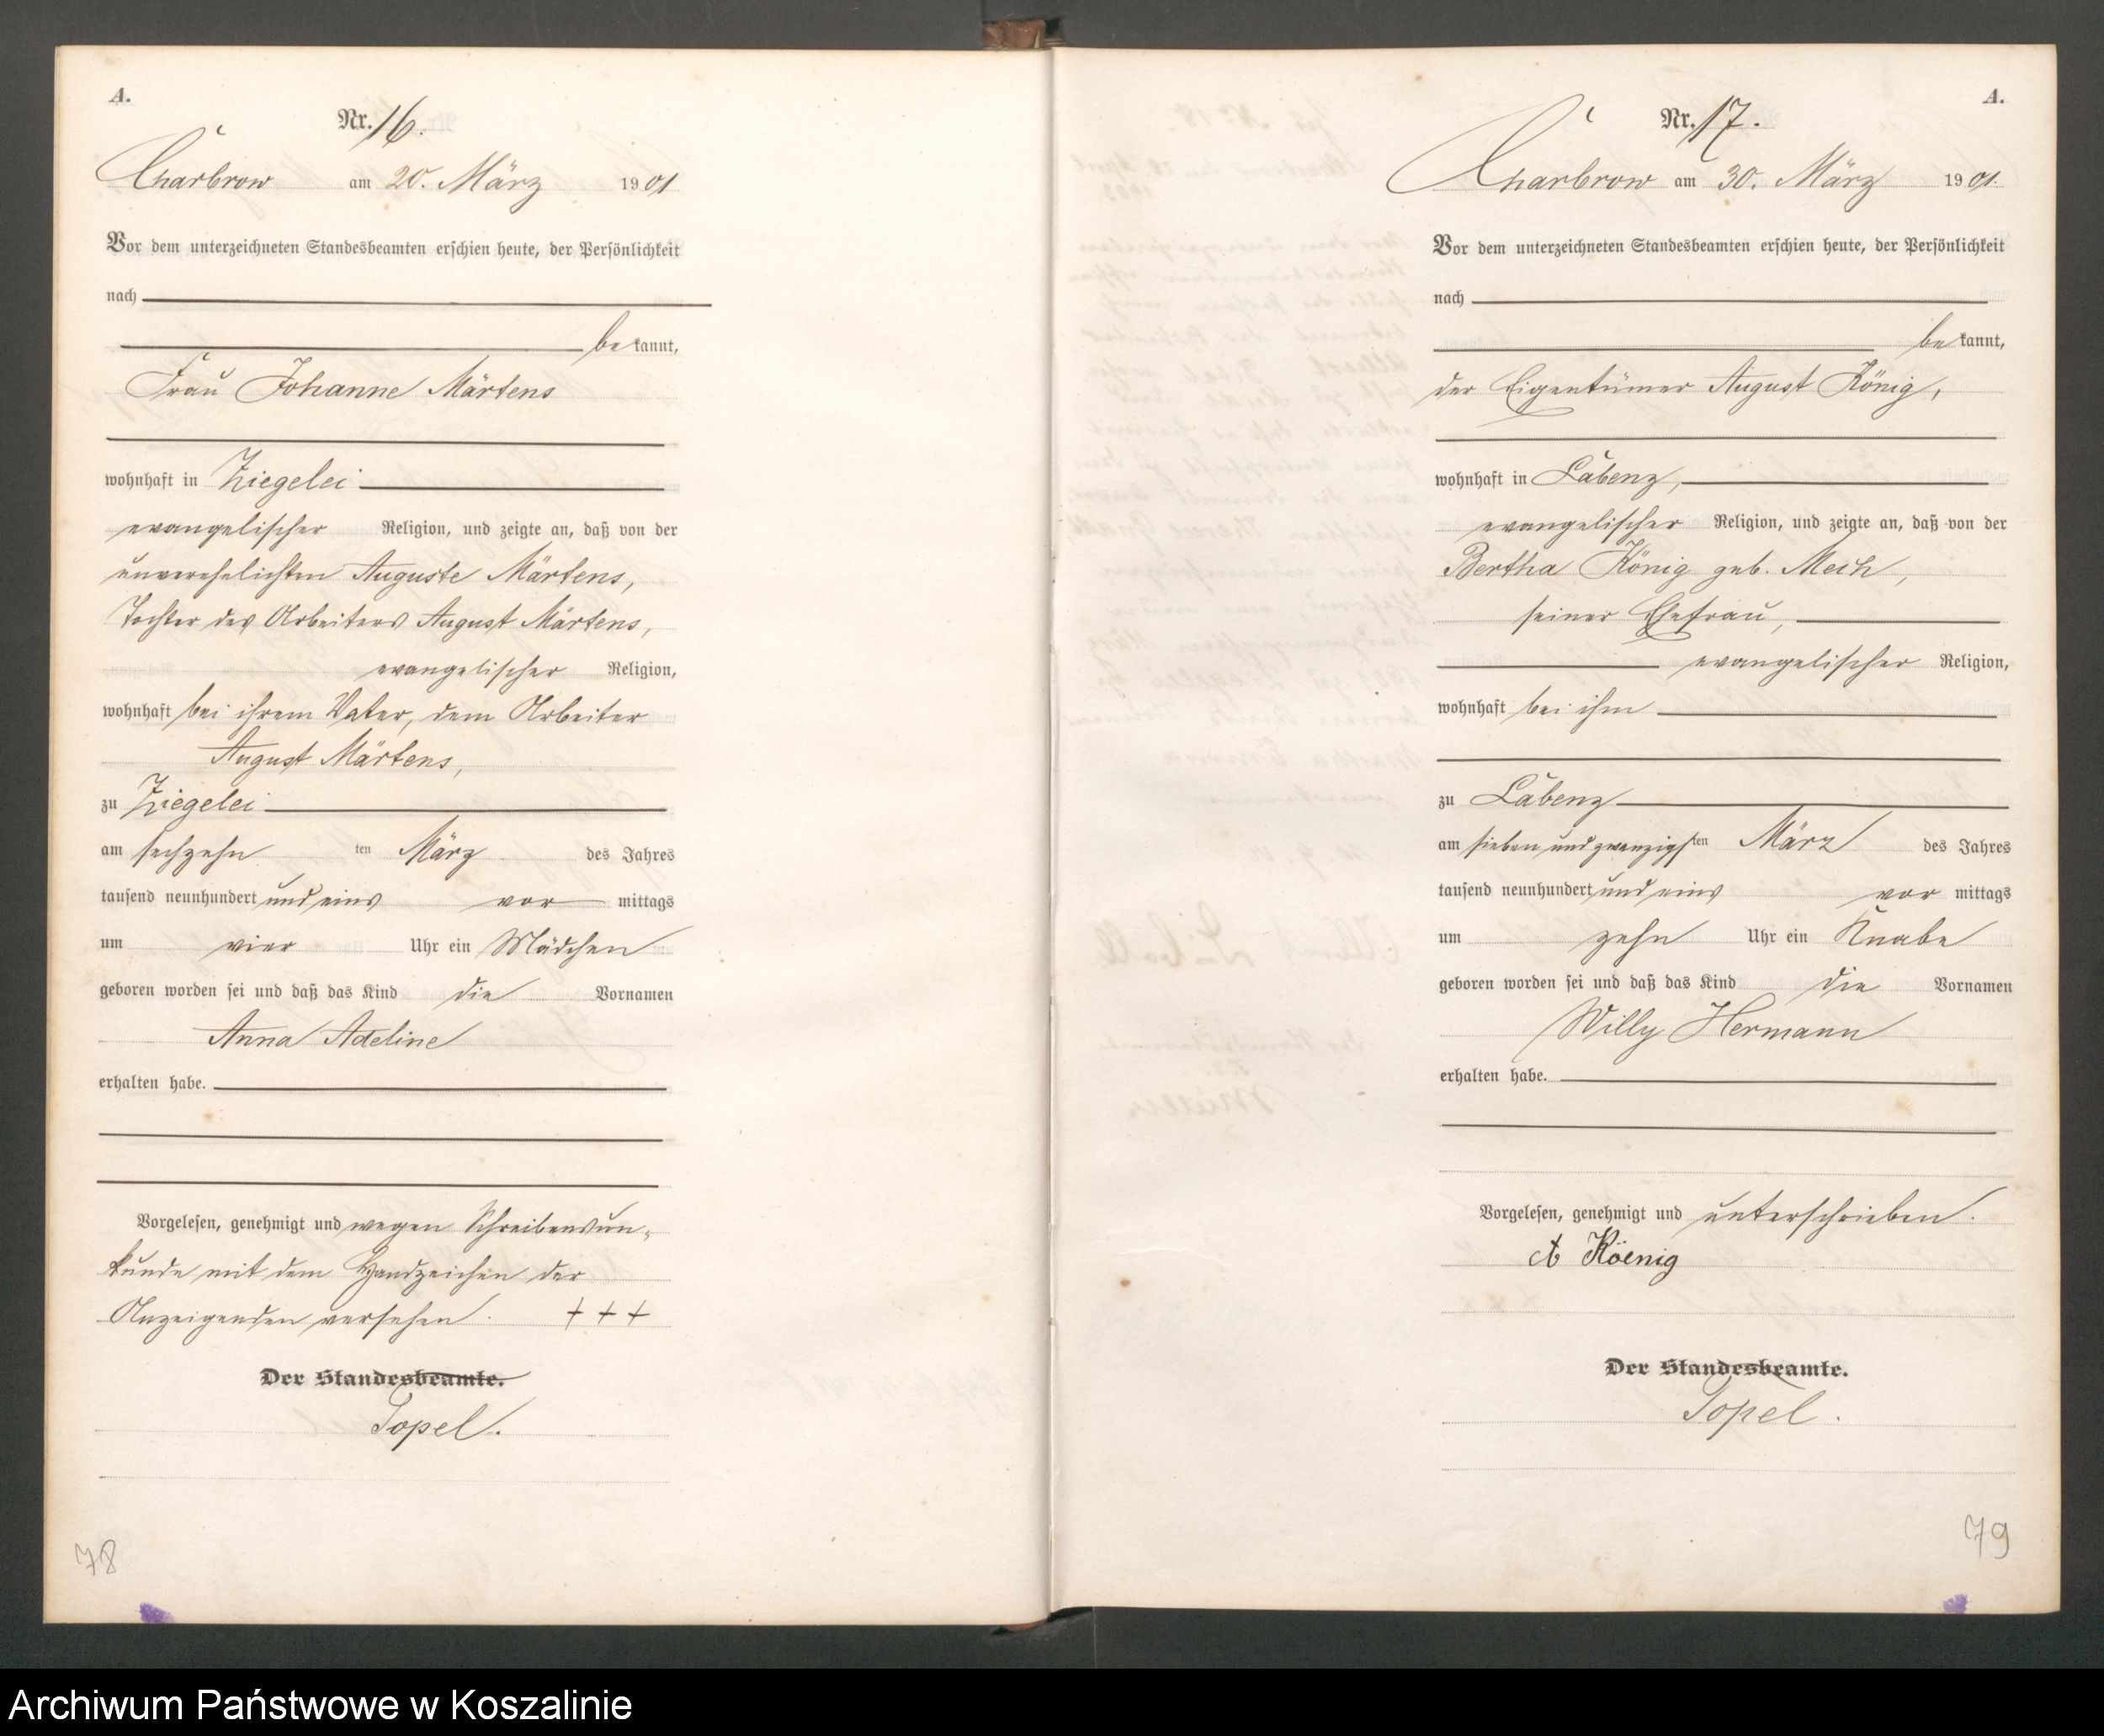 A.
Nr. 16.
Charbrow am 20. März 1901
Vor dem unterzeichneten Standesbeamten erschien heute, der Persönlichkeit
nach
bekannt,
Frau Johanne Märtens
wohnhaft in Ziegelei
evangelischer Religion, und zeigte an, daß von der
unverehelichten Auguste Märtens,
Tochter des Arbeiters August Märtens,
evangelischer Religion,
wohnhaft bei ihrem Vater, dem Arbeiter
August Märtens,
zu Ziegelei
am sechzehn ten März des Jahres
tausend neunhundert und eins vor mittags
um vier Uhr ein Mädchen
geboren worden sei und daß das Kind die Vornamen
Anna Adeline
erhalten habe.
Vorgelesen, genehmigt und wegen Schreibensun-
kunde mit dem Handzeichen der
Anzeigenden versehen. + + +
Der Standesbeamte.
Topel.
78
A.
Nr. 17.
Charbrow am 30. März 1901.
Vor dem unterzeichneten Standesbeamten erschien heute, der Persönlichkeit
nach
bekannt,
der Eigentümer August König,
wohnhaft in Labenz,
evangelischer Religion, und zeigte an, daß von der
Bertha König geb. Mech,
seiner Ehefrau,
evangelischer Religion,
wohnhaft bei ihm
zu Labenz
am sieben und zwanzigsten März des Jahres
tausend neunhundert und eins vor mittags
um zehn Uhr ein Knabe
geboren worden sei und daß das Kind die Vornamen
Willy Hermann
erhalten habe.
Vorgelesen, genehmigt und unterschrieben.
A Köenig
Der Standesbeamte.
Topel.
79
Archiwum Państwowe w Koszalinie